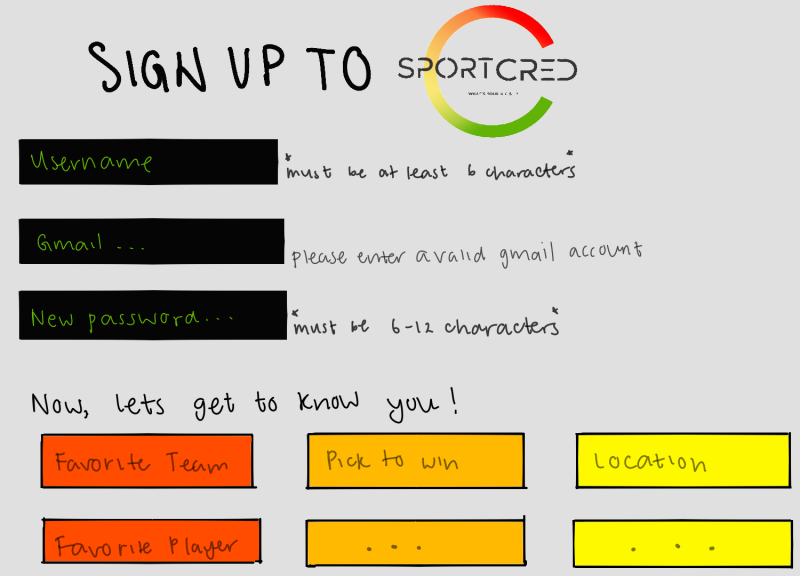 SIGN UP TO SPORTCRED
Username
*must be at least 6 characters*
Gmail ...
please enter a valid gmail account
New password...
*must be 6-12 characters*
Now, lets get to know you!
Favorite Team
Pick to win
Location
Favorite Player
...
...